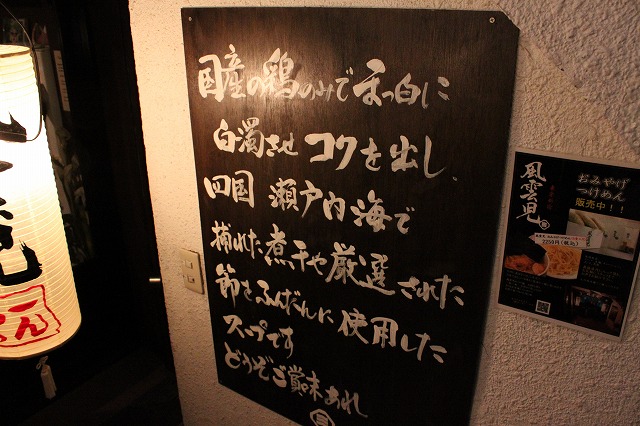 国産の鶏のみで真っ白に
白濁させコクを出し、
四国 瀬戸内海で
捕れた煮干や厳選された
節をふんだんに使用した
スープです
どうぞご賞味あれ
風雲児
おみやげ
つけめん
販売中!!